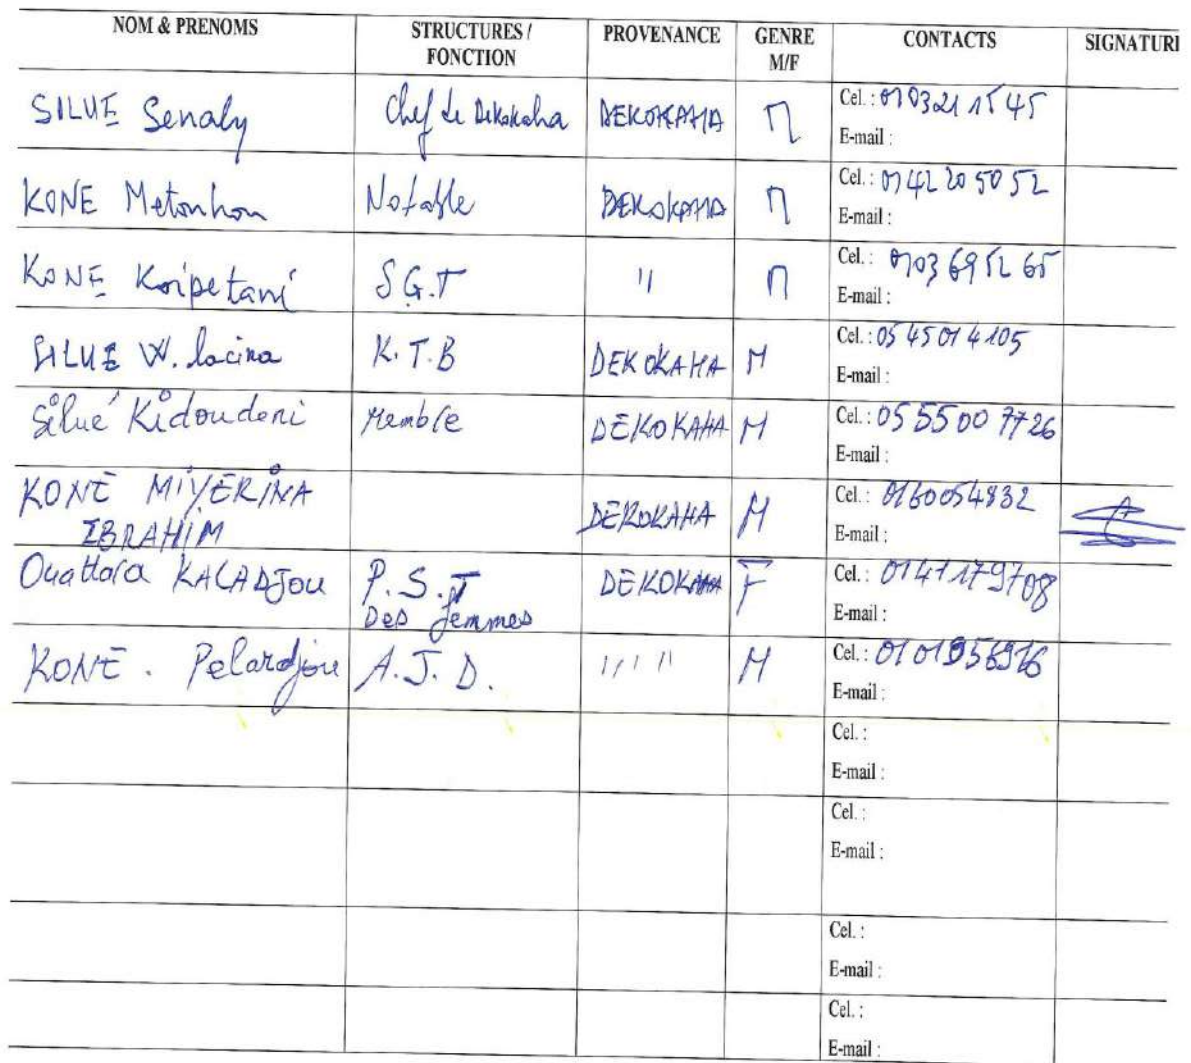 NOM & PRENOMS STRUCTURES / FONCTION PROVENANCE GENRE M/F CONTACTS SIGNATURE
SILUE Senaly Chef de Dekokaha DEKOKAHA M Cel. : 0103211545
E-mail :
KONE Metonhon Notable DEKOKAHA M Cel. : 0142205052
E-mail :
KONE Koipetani S.G.T " M Cel. : 0103695265
E-mail :
SILUE W. lacina K.T.B DEKOKAHA M Cel. : 05 45 01 4105
E-mail :
Silué Kidoudeni Membre DEKOKAHA M Cel. : 05 55 00 7726
E-mail :
KONE MIYERINA DEKOKAHA M Cel. : 0160054832
IBRAHIM E-mail :
Ouattara KALADJOU P.S.J DEKOKAHA F Cel. : 0141179708
Des femmes E-mail :
KONE. Pelardjou A.J.D. " " M Cel. :
E-mail :
Cel. :
E-mail :
Cel. :
E-mail :
Cel. :
E-mail :
Cel. :
E-mail :